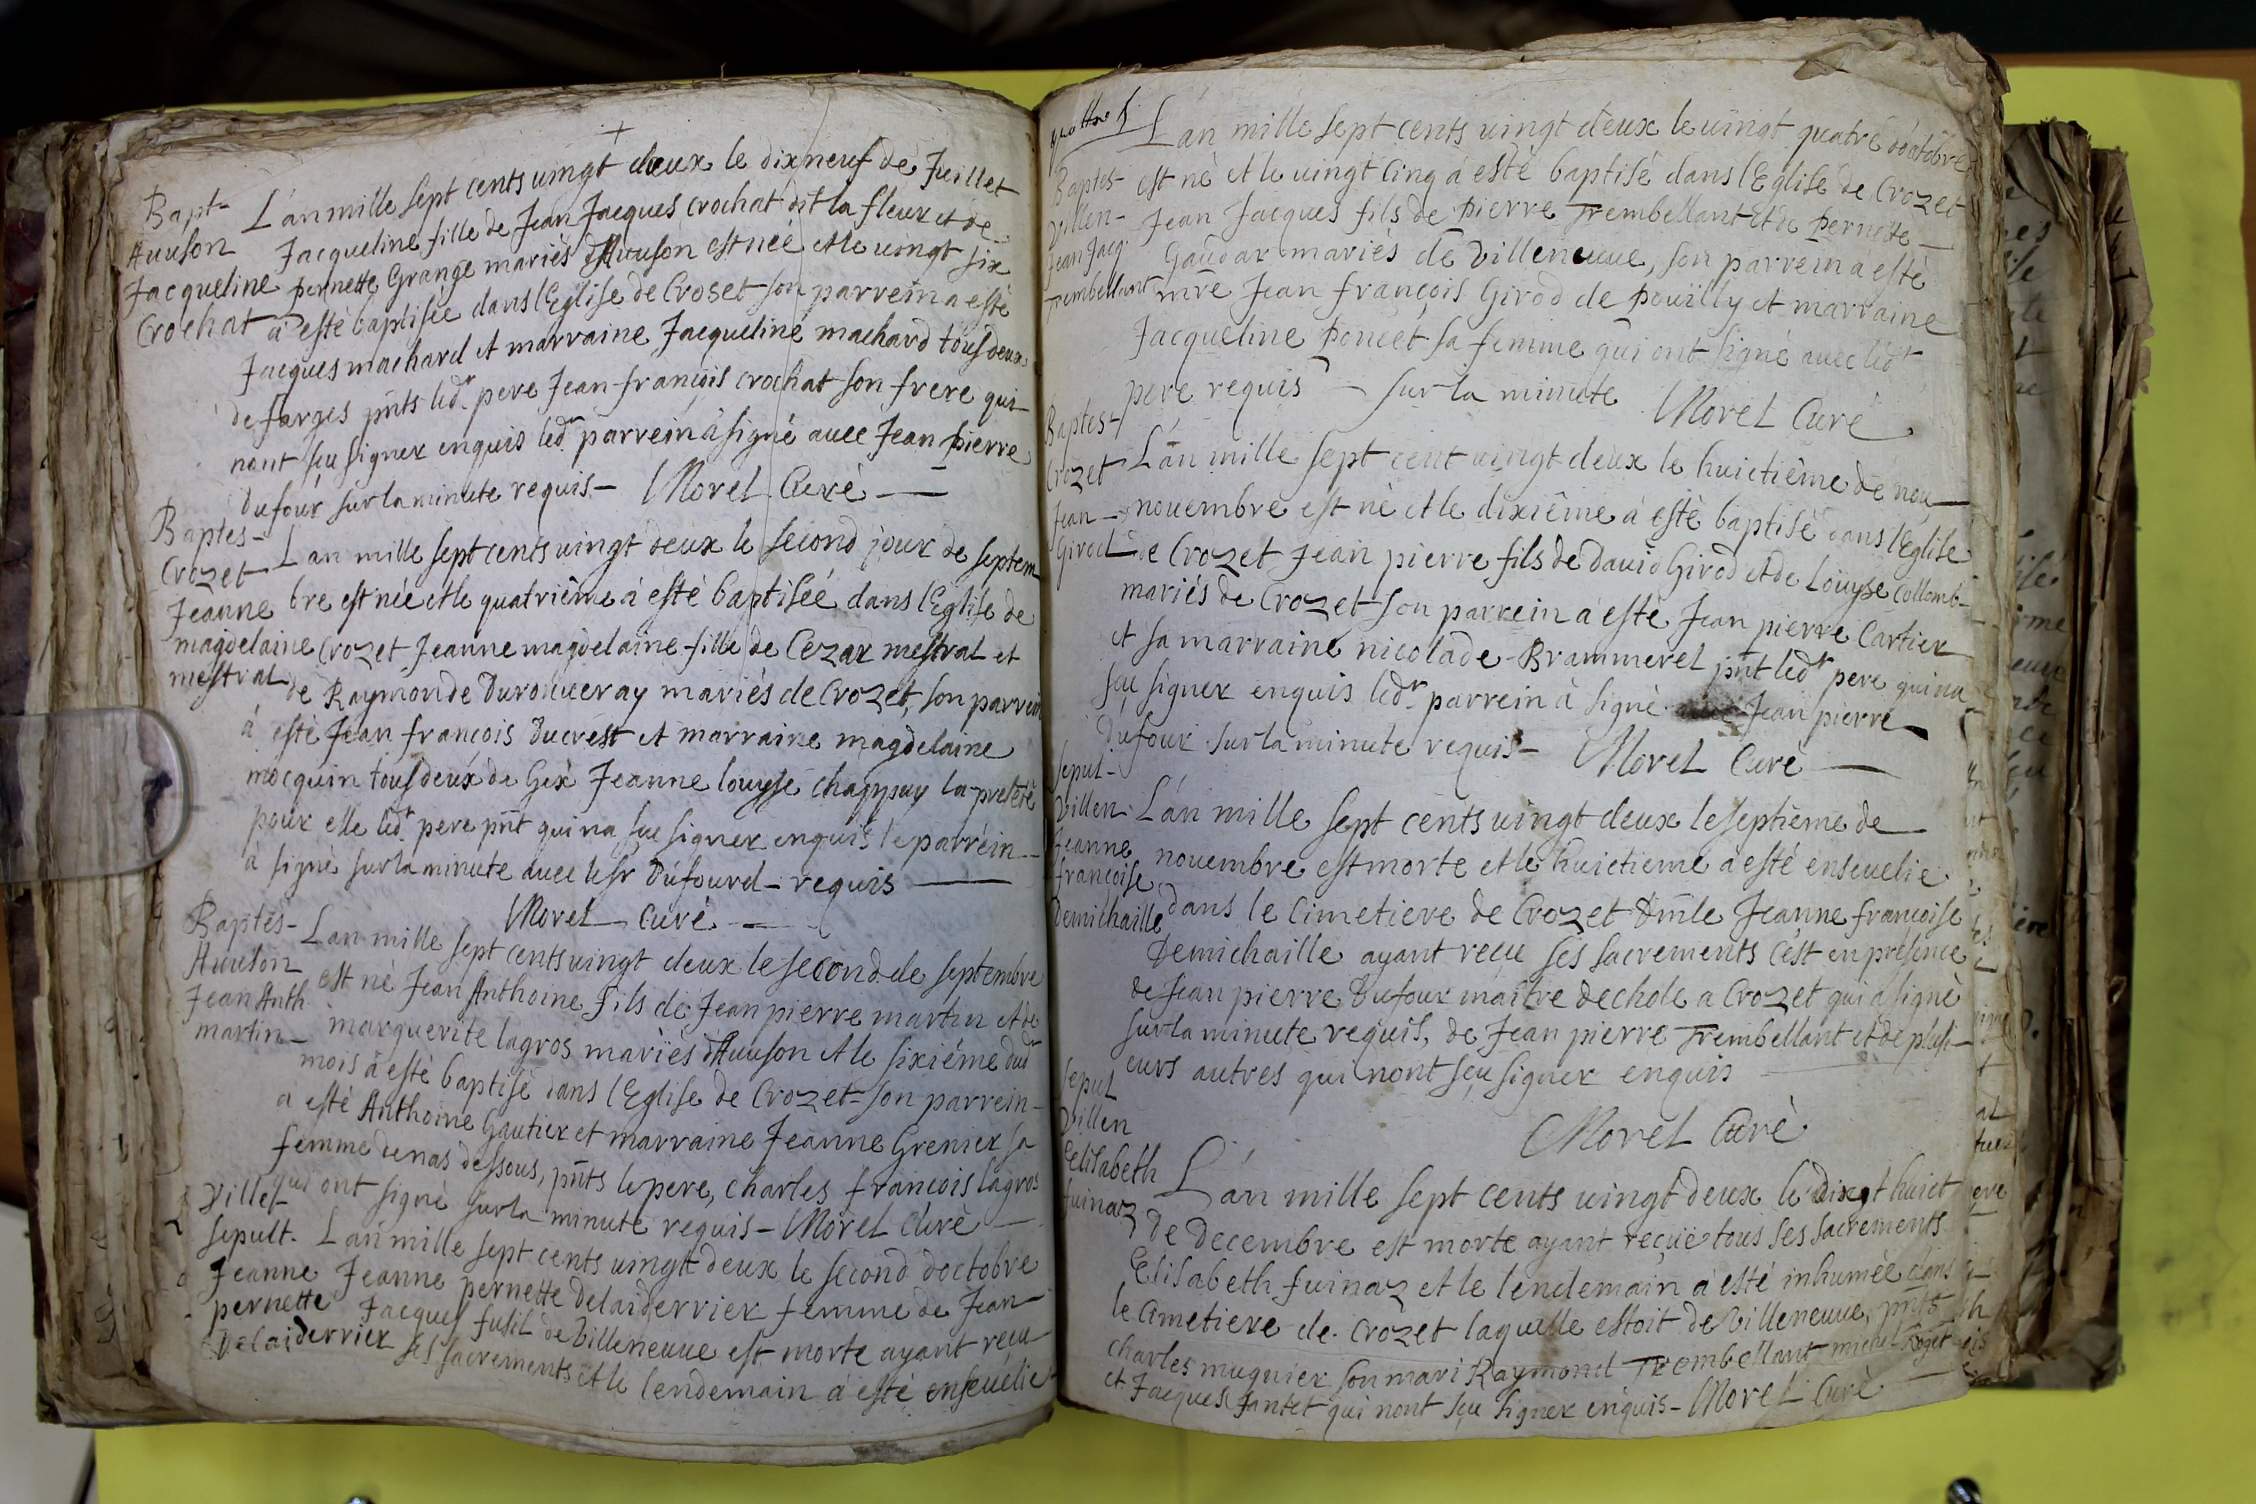 Bapt-
Auuson
Jacqueline
Crochat
L'an mille sept cents uingt deux le dixneuf de Juillet
Jacqueline fille de Jean Jacques crochat dit la fleur et de
pernette Grange mariés d'Auuson est née et le uingt six
à esté baptisée dans l'Eglise de Croset son parrein a esté
Jacques machard et marraine Jacqueline machard tous deux
de farges pñts led.r pere Jean-françois crochat son frere qui
nont sçu signer enquis led.r parrein à signé auec Jean pierre
dufour sur la minute requis - Morel Curé
Baptes-
Crozet
Jeanne
magdelaine
mestral
L'an mille sept cents uingt deux le second jour de septem
bre est née et le quatriême à esté baptisée dans l'Eglise de
Crozet Jeanne magdelaine fille de Cezar mestral et
de Raymonde Durouueray mariés de Crozet, son parrein
à esté Jean françois Ducrest et marraine magdelaine
mocquin tous deux de Gex Jeanne louyse chappuy la
pour elle led.r pere pñt qui na sçu signer enquis le parréin
à signé sur la minute auec le sr Dufourd - requis
Morel Curé
Baptes-
Auuson
Jean Anth
martin
L'an mille sept cents uingt deux le second de septembre
est né Jean Anthoine fils de Jean pierre martin et de
marguerite lagros mariés d'Auuson et le sixiéme dud.r
mois à esté baptisé dans l'Eglise de Crozet son parrein
a esté Anthoine Gautier et marraine Jeanne Grenier sa
femme denas dessous, pñts le pere, charles françois lagros
qui ont signé sur la minute requis - Morel Curé
Villes
sepult.
Jeanne
pernette
Delaiderrier
L'an mille sept cents uingt deux le second doctobre
Jeanne pernette delaiderrier femme de Jean
Jacques fusil de Villeneuue est morte ayant reçu
ses sacrements et le lendemain à esté enseuelie
Baptes-
Villen-
Jean Jacq.
Trembellant
L'an mille sept cents uingt deux le uingt quatre doctobre
est né et le uingt cinq á esté baptisé dans l'Eglise de Crozet
Jean Jacques fils de pierre Trembellant et de pernette
Gaudar mariés de Villeneuue, son parrein a esté
mre Jean françois Girod de pouilly et marraine
Jacqueline poncet sa femme qui ont signé auec led.r
pere requis - sur la minute Morel Curé
Baptes-
Crozet
Jean
Girod
L'an mille sept cent uingt deux le huictiême de nou
nouembre est né et le dixiême à esté baptisé dans l'Eglise
de Crozet Jean pierre fils de Dauid Girod et de Louyse Collomb
mariés de Crozet son parrein a esté Jean pierre Cartier
et sa marraine nicolade Brammerel pñt led.r pere qui na
sçu signer enquis led.r parrein à signé Jean pierre
Dufour sur la minute requis - Morel Curé
Sepul-
Villen.
Jeanne
françoise
Demichaille
L'an mille sept cents uingt deux le septiême de
nouembre est morte et le huictieme a esté enseuelie
dans le Cimetiere de Crozet Jeanne françoise
Demichaille ayant reçu ses sacrements c'est en présence
de Jean pierre Dufour maître dechole a Crozet qui a signé
sur la minute requis, de Jean pierre Trembellant et de plusi
eurs autres qui nont sçu signer enquis
Morel Curé
Sepul
Villen
Elisabeth
fuinaz
L'an mille sept cents uingt deux le huict
de decembre est morte ayant reçüe tous ses sacrements
Elisabeth fuinaz et le lendemain a esté inhumée dans
le Cimetiere de Crozet laquelle estoit de Villeneuue, pñts
charles mugnier son mari Raymond Trembellant michel Roget
et Jacques Jantet qui nont sçu signer enquis - Morel Curé